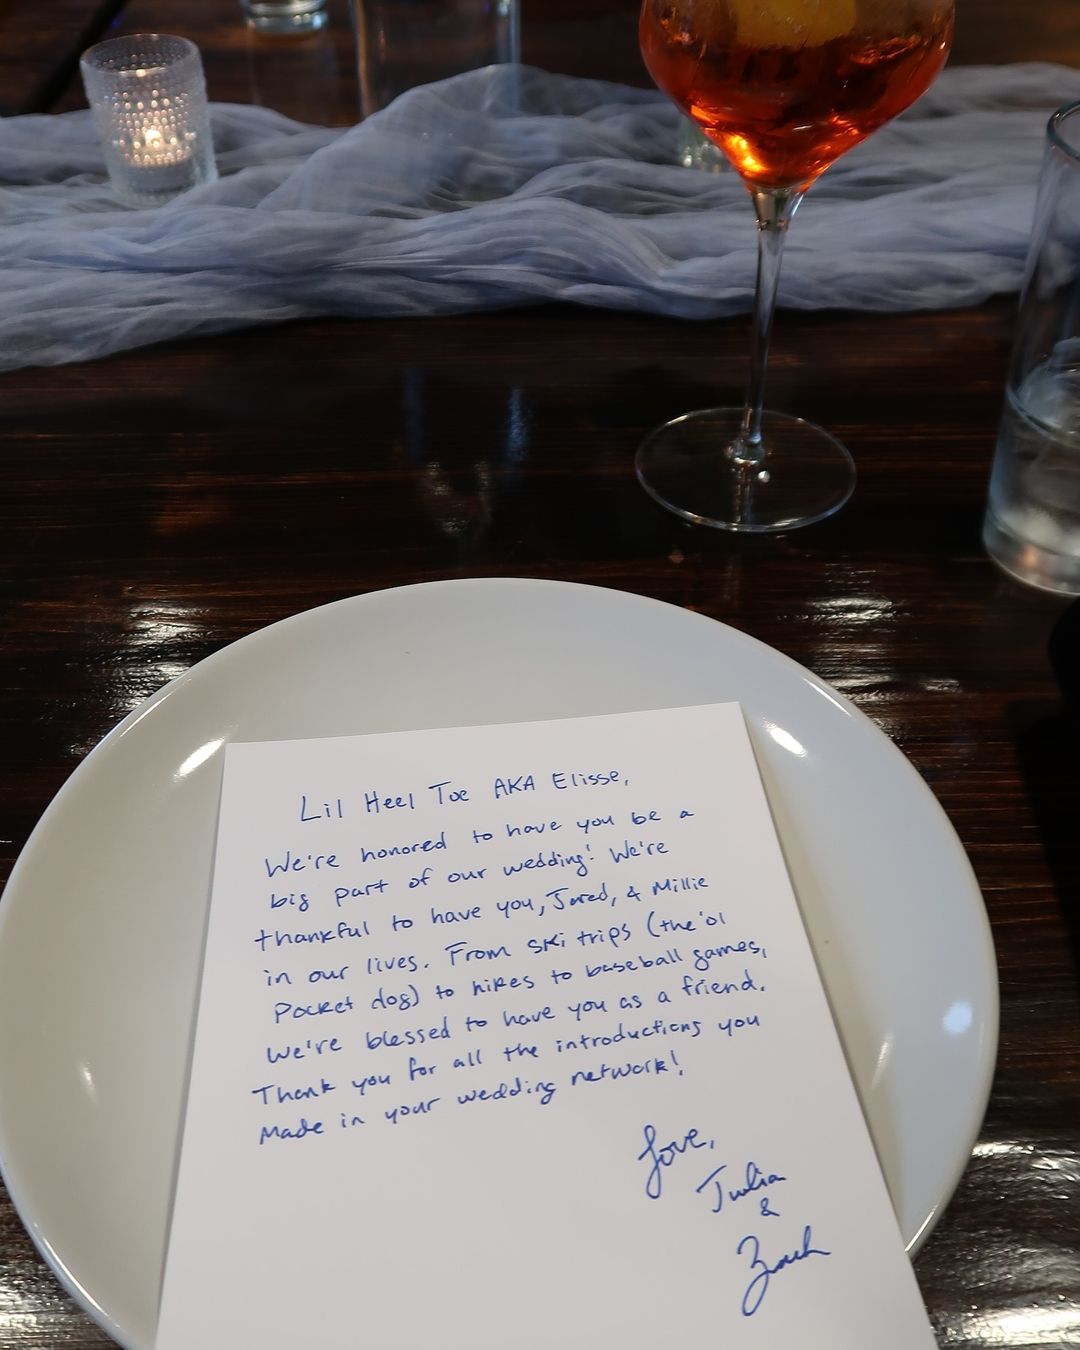 Lil Heel Toe AKA Elisse,
We're honored to have you be a
big part of our wedding! We're
thankful to have you, Jared, & Millie
in our lives. From ski trips (the 'ol
Pocket dog) to hikes to baseball games,
we're blessed to have you as a friend.
Thank you for all the introductions you
made in your wedding network!
Love,
Julia
&
Zach